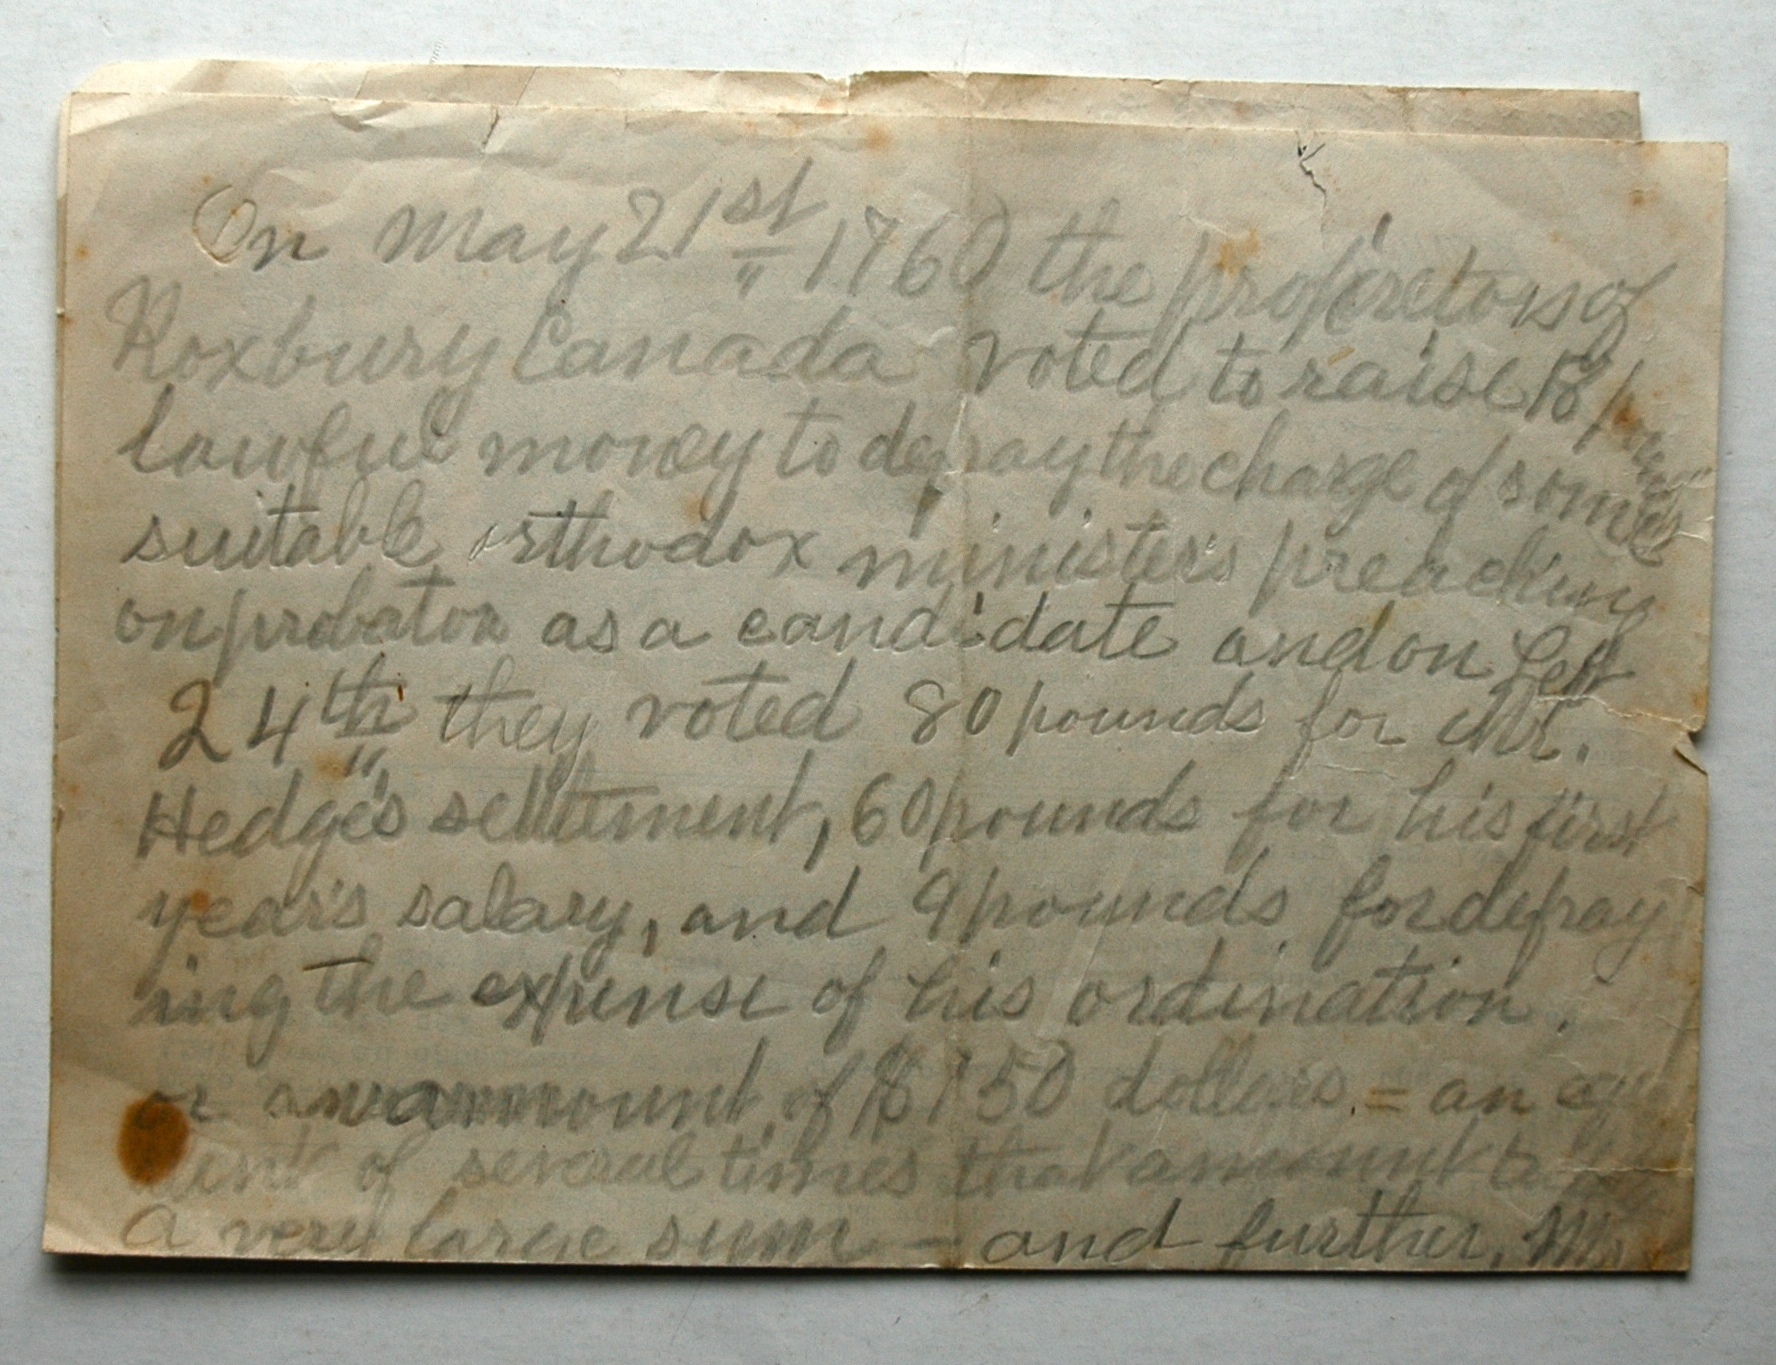 On May 21st 1760 the propiretors of
Roxbury Canada voted to raise 18 pounds
lawful money to defray the charge of some
suitable orthodox minister's preaching
on probaton as a candidate and on Sept
24th they voted 80 pounds for Mr.
Hedge's settlement, 60 pounds for his first
year's salary, and 9 pounds for defray
ing the expense of his ordination.
or an amount of $750 dollars = an
of several times that amount
a very large sum — and further, Mr.